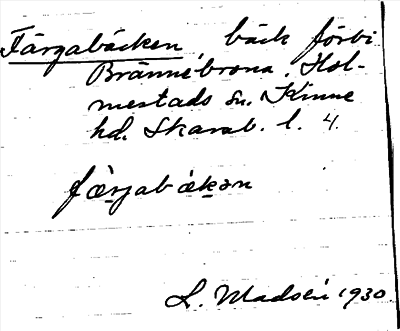 Färgabäcken, bäck förbi
Brännebrona. Hol-
mestads sn. Kinne
hd. Skarab. l. 4.
færjabækən
L. Madsén 1930